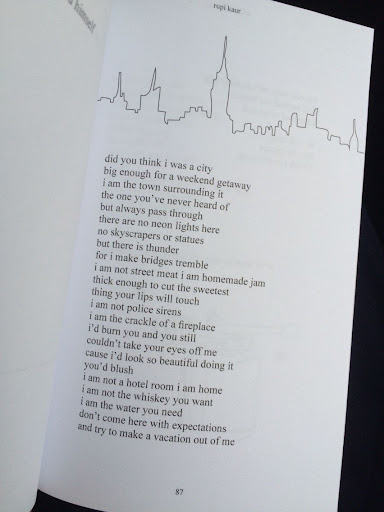 himself
rupi kaur
did you think i was a city
big enough for a weekend getaway
i am the town surrounding it
the one you've never heard of
but always pass through
there are no neon lights here
no skyscrapers or statues
but there is thunder
for i make bridges tremble
i am not street meat i am homemade jam
thick enough to cut the sweetest
thing your lips will touch
i am not police sirens
i am the crackle of a fireplace
i'd burn you and you still
couldn't take your eyes off me
cause i'd look so beautiful doing it
you'd blush
i am not a hotel room i am home
i am not the whiskey you want
i am the water you need
don't come here with expectations
and try to make a vacation out of me
87